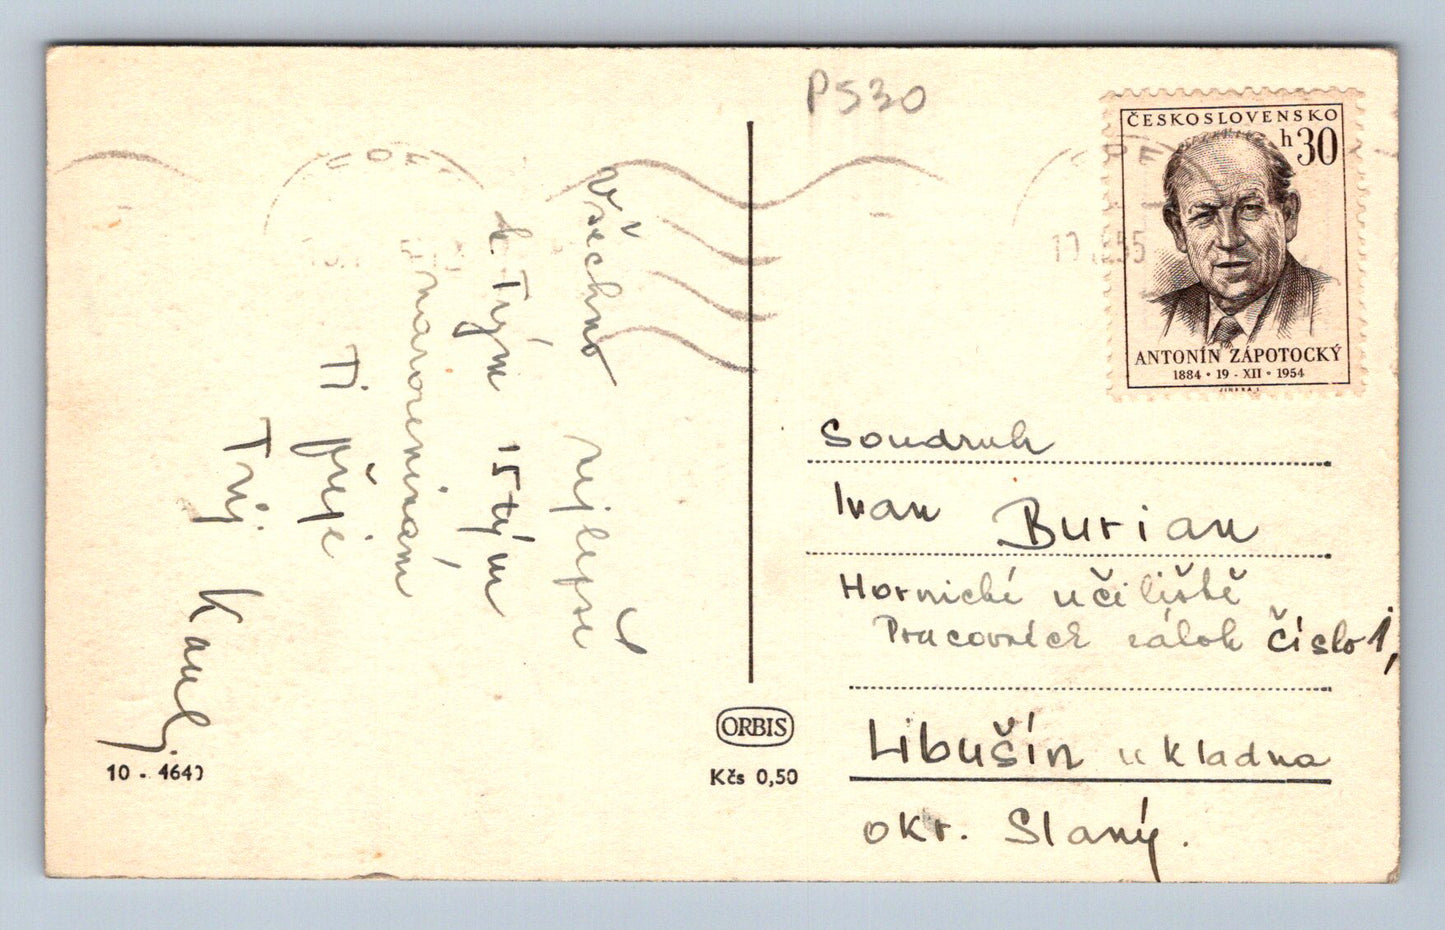 P530
ČESKOSLOVENSKO
h 30
ANTONÍN ZÁPOTOCKÝ
1884 • 19 - XII • 1954
Všechno nejlepší
k Tvým 15tým
narozeninám
Ti přeje
Tvůj Karel
10 - 464
ORBIS
Kčs 0,50
Soudruh
Ivan Burian
Hornické učiliště
Pracovních záloh číslo 1,
Libušín u Kladna
okr. Slaný.